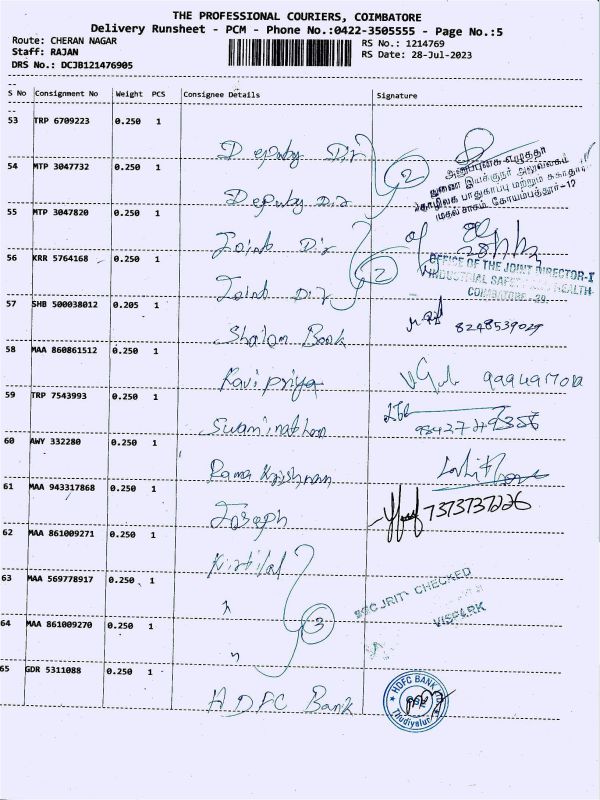 THE PROFESSIONAL COURIERS, COIMBATORE
Delivery Runsheet - PCM - Phone No.:0422-3505555 - Page No.:5
Route: CHERAN NAGAR
RS No.: 1214769
Staff: RAJAN
RS Date: 28-Jul-2023
DRS No.: DCJB121476905
S No Consignment No Weight PCS Consignee Details Signature
53 TRP 6709223 0.250 1 Deputy Dir
அனுப்புகை எழுத்தர்
துணை இயக்குநர் அலுவலகம்
தொழிலக பாதுகாப்பு மற்றும் சுகாதார
கோயம்புத்தூர்-12
54 MTP 3047732 0.250 1 Deputy Dir
2
55 MTP 3047820 0.250 1 Joint Dir
56 KRR 5764168 0.250 1 Joint Dir
2
OFFICE OF THE JOINT DIRECTOR-I
INDUSTRIAL SAFETY HEALTH
COIMBATORE
57 SHB 500038012 0.205 1 Shalom Book 8248539029
58 MAA 860861512 0.250 1 Ravi Priya
59 TRP 7543993 0.250 1 Swaminathan
60 AWY 332280 0.250 1 Rama Krishnan
61 MAA 943317868 0.250 1 Joseph 7373737226
62 MAA 861009271 0.250 1 Kirtilal
63 MAA 569778917 0.250 1 "
SECURITY CHECKED
VISPARK
64 MAA 861009270 0.250 1 "
3
65 GDR 5311088 0.250 1 HDFC Bank
HDFC BANK
Thudiyalur